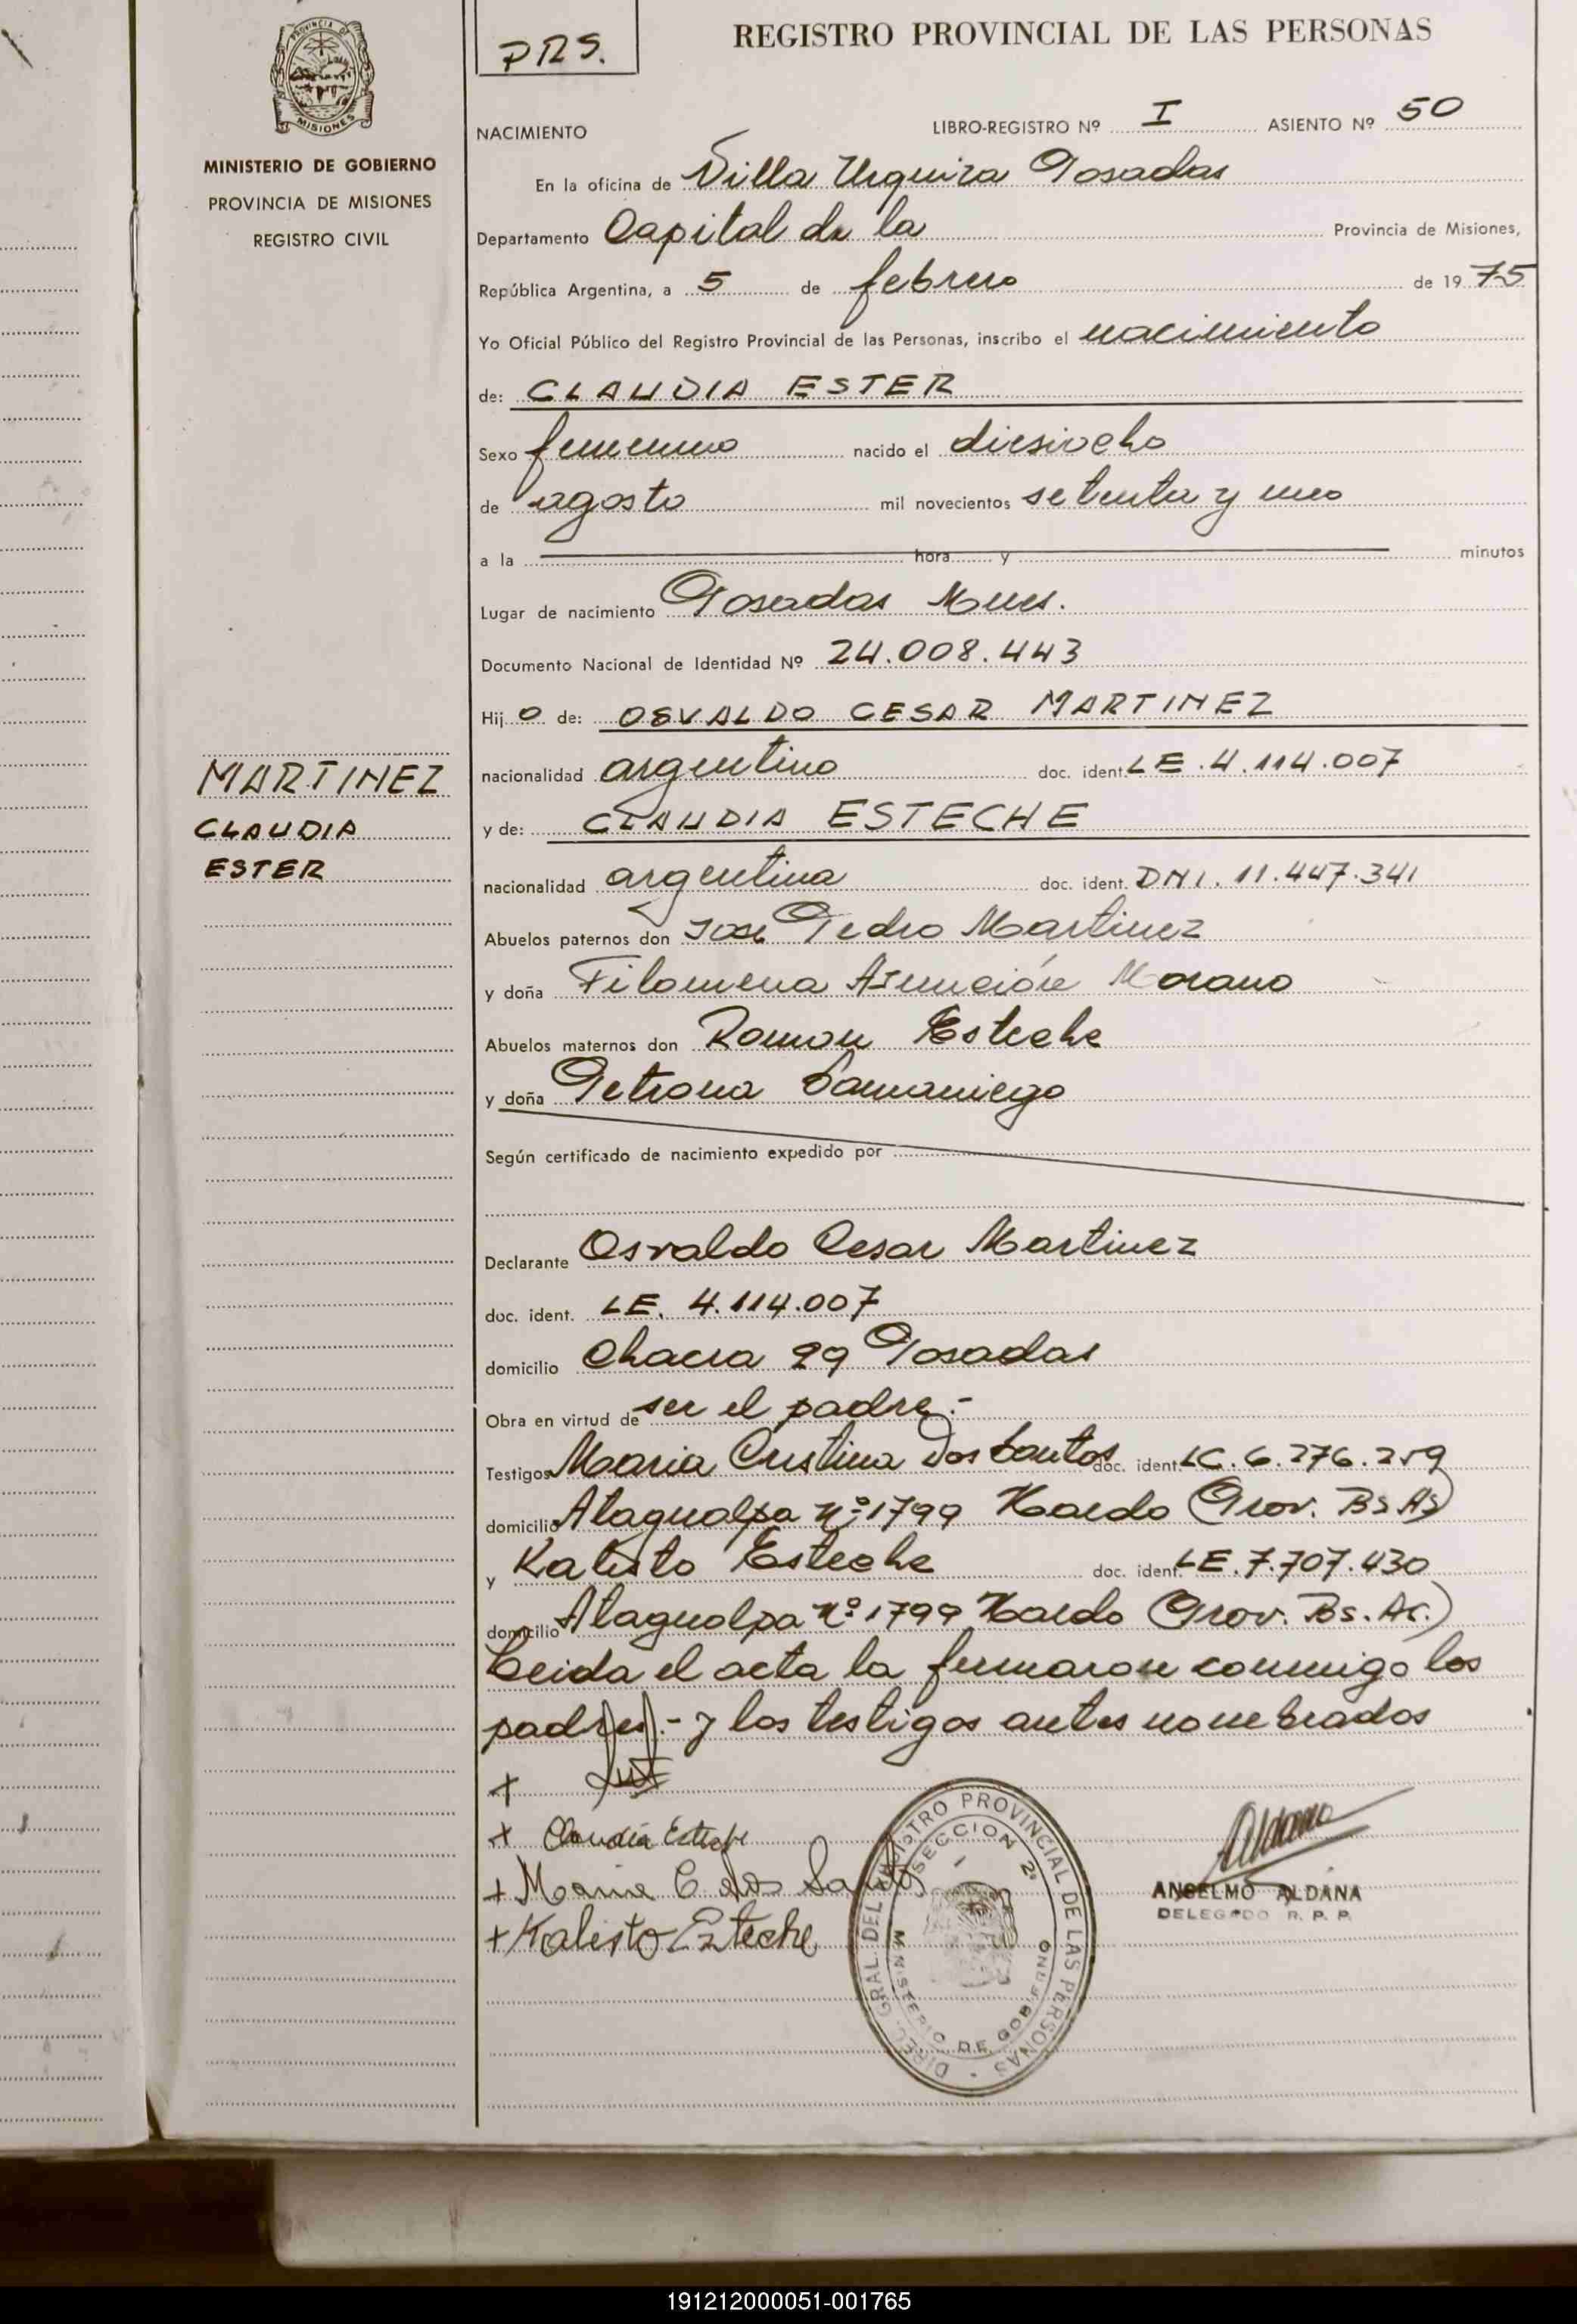 PRS.
REGISTRO PROVINCIAL DE LAS PERSONAS
PROVINCIA DE MISIONES
MINISTERIO DE GOBIERNO
PROVINCIA DE MISIONES
REGISTRO CIVIL
NACIMIENTO LIBRO-REGISTRO Nº I ASIENTO Nº 50
En la oficina de Villa Urquiza Posadas
Departamento Capital de la Provincia de Misiones,
República Argentina, a 5 de febrero de 1975
Yo Oficial Público del Registro Provincial de las Personas, inscribo el nacimiento
de: CLAUDIA ESTER
Sexo femenino nacido el diesiocho
de agosto mil novecientos setenta y uno
a la hora y minutos
Lugar de nacimiento Posadas Mnes.
Documento Nacional de Identidad Nº 24.008.443
Hij o de: OSVALDO CESAR MARTINEZ
nacionalidad argentino doc. ident. LE.4.114.007
y de: CLAUDIA ESTECHE
nacionalidad argentina doc. ident. DNI. 11.447.341
MARTINEZ
CLAUDIA
ESTER
Abuelos paternos don Jose Pedro Martinez
y doña Filomena Asunción Morano
Abuelos maternos don Ramon Esteche
y doña Petrona Samaniego
Según certificado de nacimiento expedido por
Declarante Osvaldo Cesar Martinez
doc. ident. LE. 4.114.007
domicilio Chacra 29 Posadas
Obra en virtud de ser el padre.-
Testigos Maria Cristina Dos Santos doc. ident. LC. 6.276.259
domicilio Atagualpa Nº 1799 Haedo (Prov. Bs As)
y Kalisto Esteche doc. ident. LE.7.707.430
domicilio Atagualpa Nº 1799 Haedo (Prov. Bs. As.)
Leida el acta la firmaron conmigo los
padres.- y los testigos antes nombrados
+
+ Claudia Esteche
+ Maria C dos Santos
+ Kalisto Esteche
DIREC. GRAL. DEL REGISTRO PROVINCIAL DE LAS PERSONAS
SECCION 2ª
MINISTERIO DE GOBIERNO
Aldana
ANSELMO ALDANA
DELEGADO R. P. P.
191212000051-001765